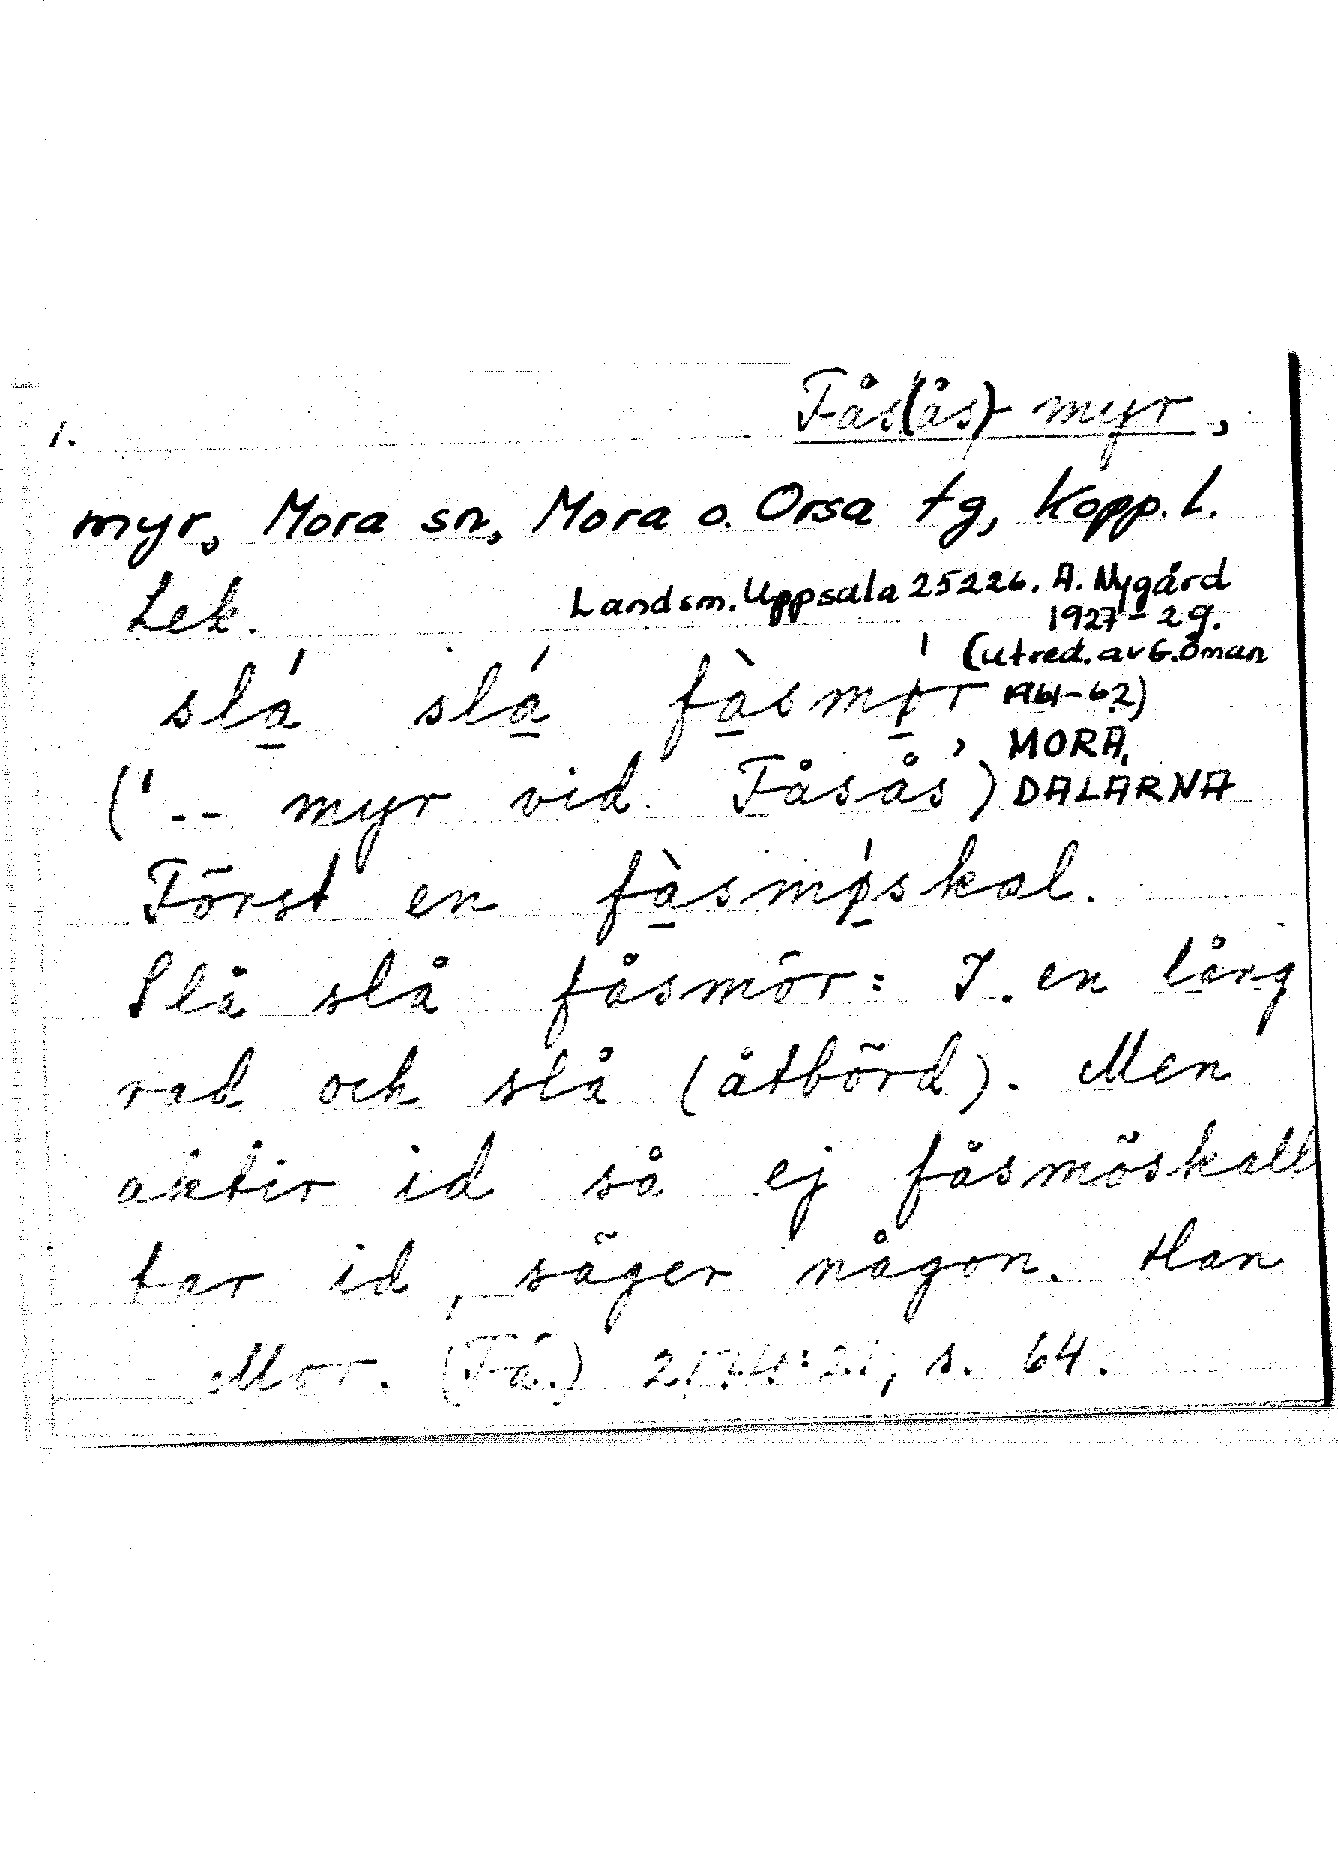 Fås(ås)- myr,
1.
myr, Mora sn, Mora o. Orsa tg, Kopp. l.
Lek.
Landsm. Uppsala 25226. A. Nygård
1927-29.
(utred. av G. Öman
1961-62)
slá̱ slá̱ fà̱smø̱r
MORA,
('-- myr vid Fåsås') DALARNA
Först en fà̱smø̱skal.
Slå slå fåsmör: I en lång
rad och slå (åtbörd). Men
aktir id så ej fåsmöskall
tar id, säger någon. Han
Mor. (Få.) s. 64.